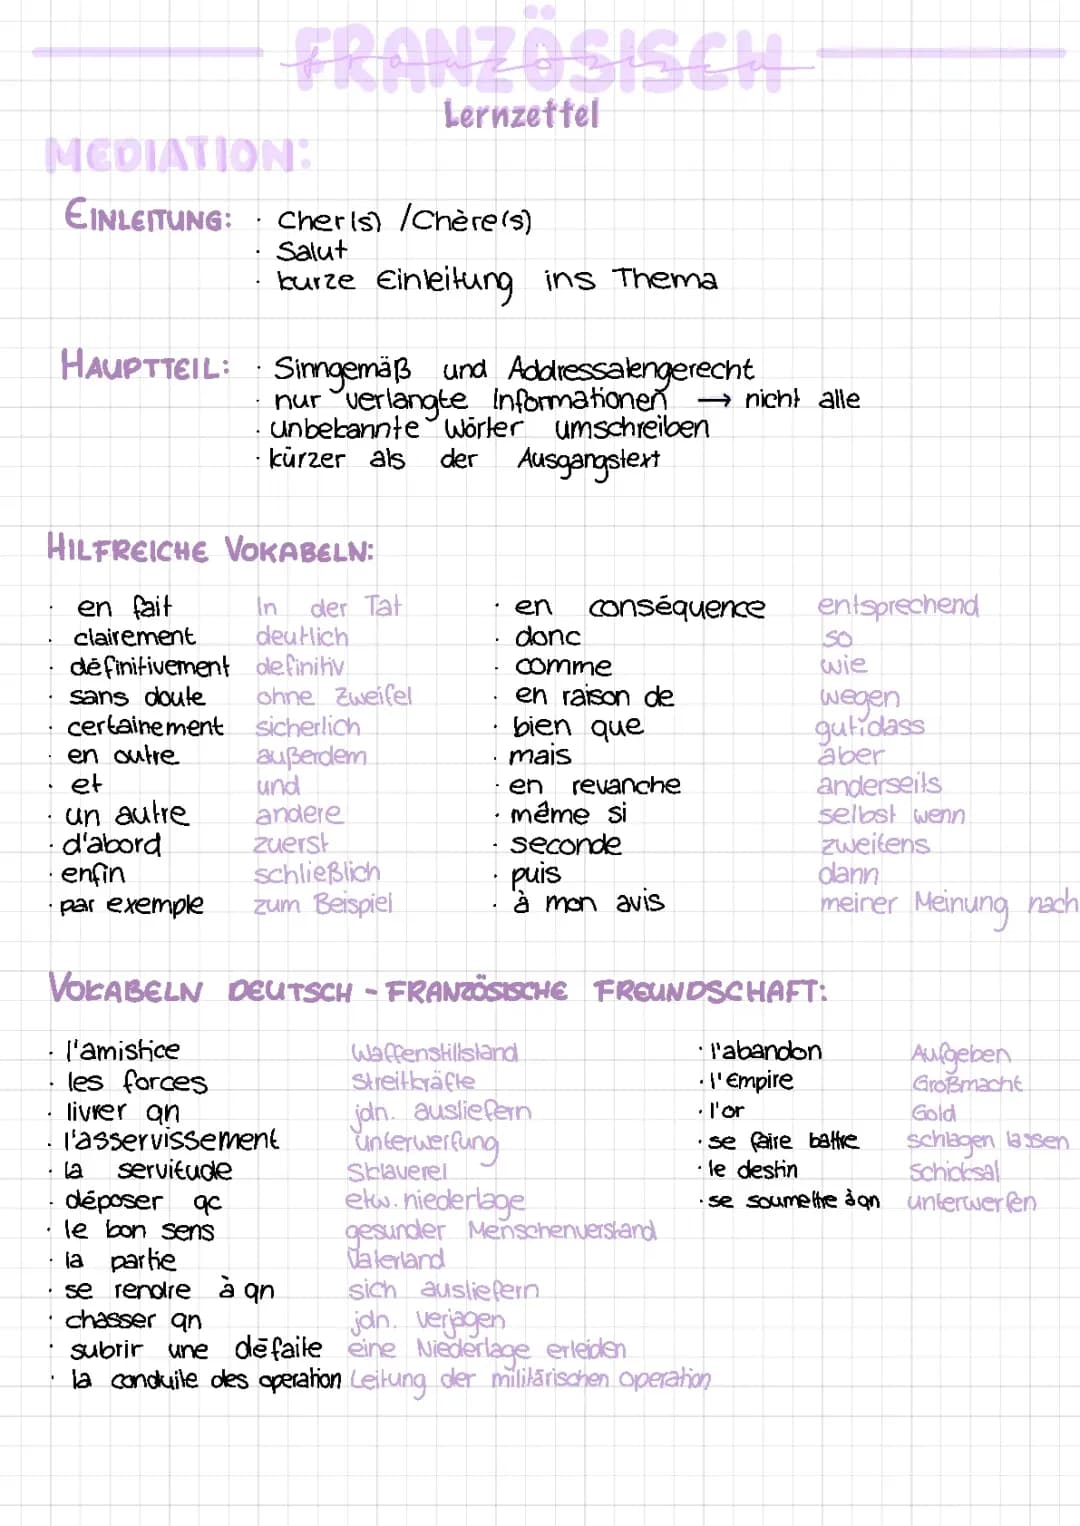 FRANZÖSISCH
französisch
Lernzettel
MEDIATION:
EINLEITUNG: · Cher(s) / Chère(s)
· Salut
· kurze Einleitung ins Thema
HAUPTTEIL: · Sinngemäß und Addressatengerecht
· nur verlangte Informationen → nicht alle
· unbekannte Wörter umschreiben
· kürzer als der Ausgangstext
HILFREICHE VOKABELN:
· en fait In der Tat
· clairement deutlich
· définitivement definitiv
· sans doute ohne Zweifel
· certainement sicherlich
· en outre außerdem
· et und
· un autre andere
· d'abord zuerst
· enfin schließlich
· par exemple zum Beispiel
· en conséquence entsprechend
· donc so
· comme wie
· en raison de wegen
· bien que gut, dass
· mais aber
· en revanche anderseits
· même si selbst wenn
· seconde zweitens
· puis dann
· à mon avis meiner Meinung nach
VOKABELN DEUTSCH - FRANZÖSISCHE FREUNDSCHAFT:
· l'amistice Waffenstillstand
· les forces Streitkräfte
· livrer qn jdn. ausliefern
· l'asservissement Unterwerfung
· la servitude Sklaverei
· déposer qc etw. niederlage
· le bon sens gesunder Menschenverstand
· la partie Vaterland
· se rendre à qn sich ausliefern
· chasser qn jdn. verjagen
· subrir une défaite eine Niederlage erleiden
· la conduite des operation Leitung der militärischen Operation
· l'abandon Aufgeben
· l'Empire Großmacht
· l'or Gold
· se faire battre schlagen lassen
· le destin Schicksal
· se soumettre à qn unterwerfen